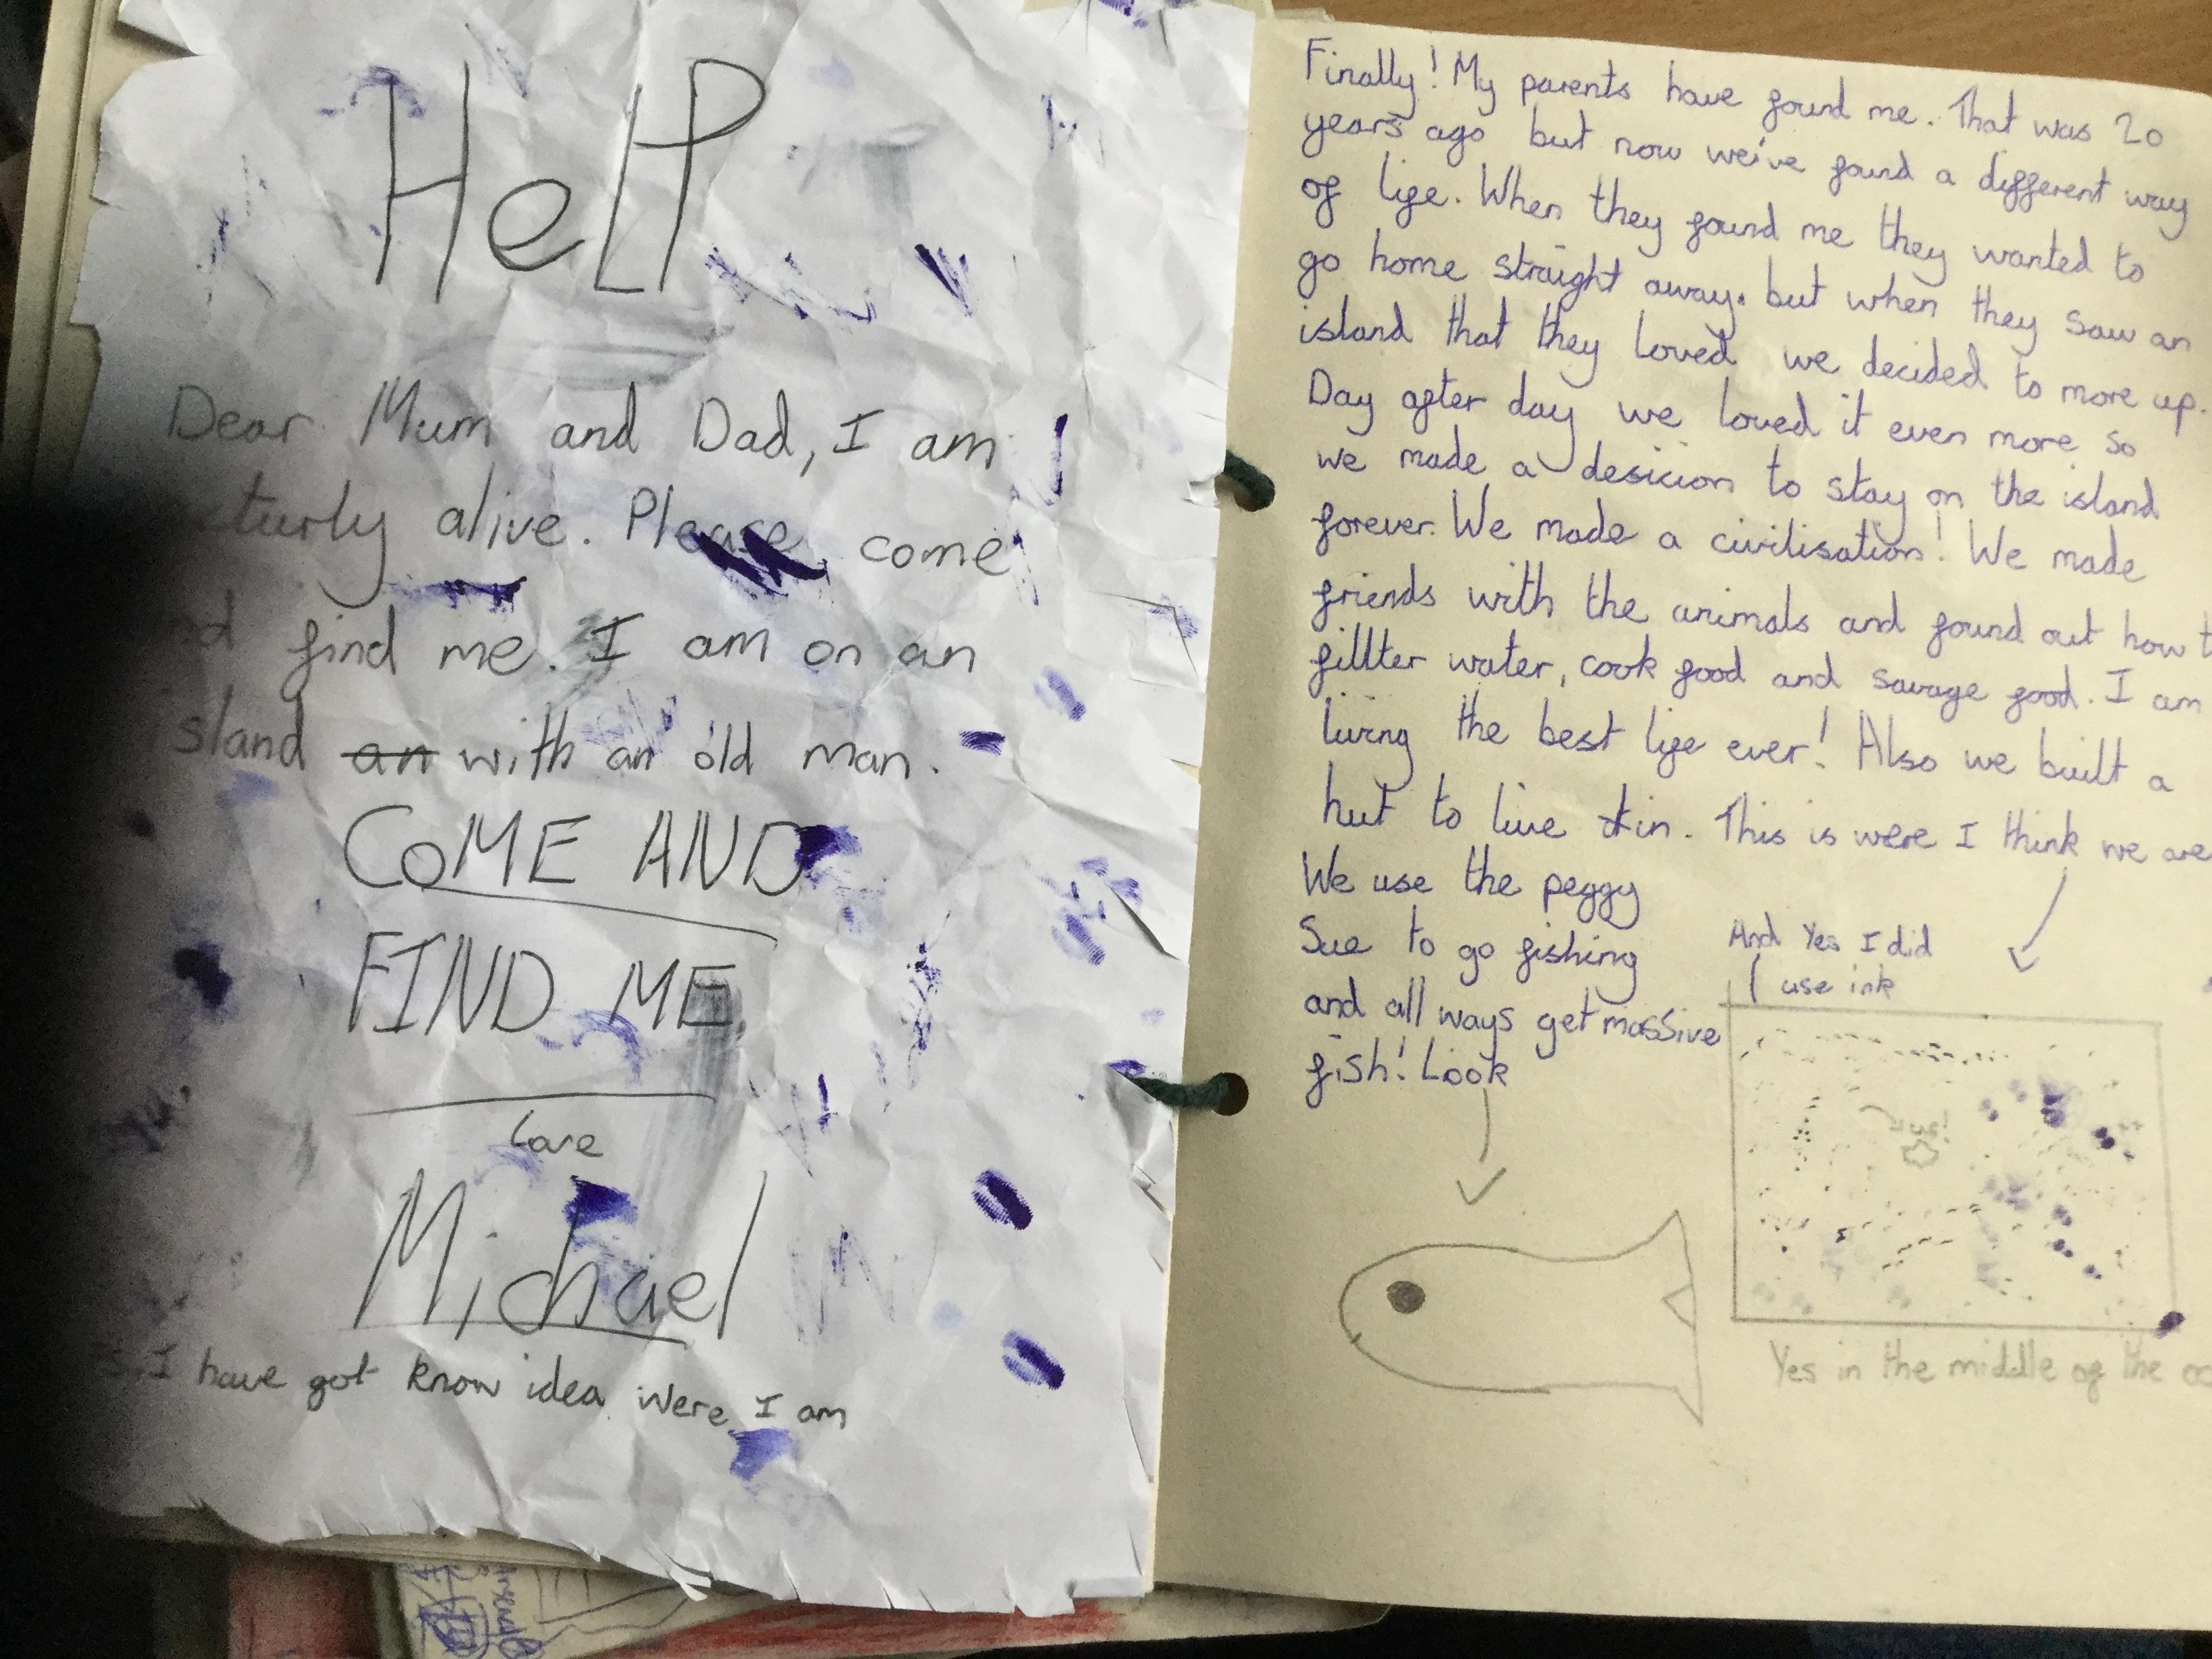 HeLP
Dear Mum and Dad, I am
cturly alive. Please come
nd find me. I am on an
sland an with an old man.
COME AND
FIND ME
Love
Michael
S. I have got know idea were I am
Finally! My parents have found me. That was 20
years ago but now we've found a different way
of life. When they found me they wanted to
go home straight away. but when they saw an
island that they loved we decided to more up.
Day after day we loved it even more so
we made a desicion to stay on the island
forever. We made a civilisation! We made
friends with the animals and found out how t
fillter water, cook food and savage food. I am
living the best life ever! Also we built a
hut to live in. This is were I think we are
We use the peggy
Sue to go fishing
and all ways get massive
fish! Look
And Yes I did
use ink
us!
Yes in the middle of the oc